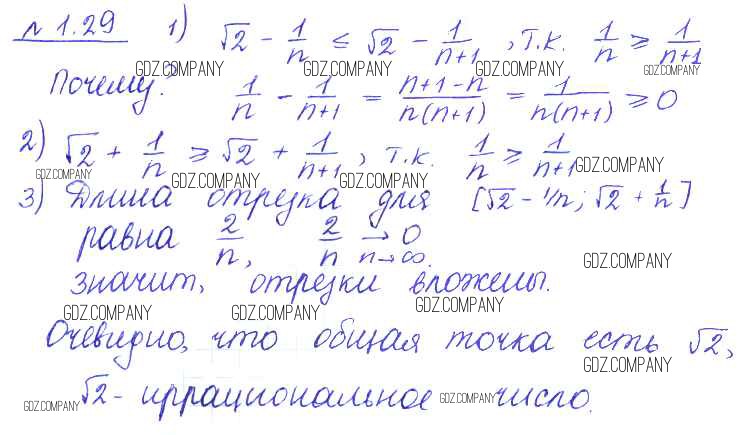 № 1.29 1) √2 - 1/n ≤ √2 - 1/(n+1), т.к. 1/n ≥ 1/(n+1)
GDZ.COMPANY GDZ.COMPANY GDZ.COMPANY GDZ.COMPANY
Почему? 1/n - 1/(n+1) = (n+1-n)/(n(n+1)) = 1/(n(n+1)) ≥ 0
2) √2 + 1/n ≥ √2 + 1/(n+1), т.к. 1/n ≥ 1/(n+1) GDZ.COMPANY
GDZ.COMPANY GDZ.COMPANY GDZ.COMPANY
3) Длина отрезка для [√2 - 1/n; √2 + 1/n]
равна 2/n, 2/n → 0 n→∞.
GDZ.COMPANY
значит, отрезки вложены.
GDZ.COMPANY GDZ.COMPANY GDZ.COMPANY
Очевидно, что общая точка есть √2,
GDZ.COMPANY
√2 - иррациональное число.
GDZ.COMPANY GDZ.COMPANY